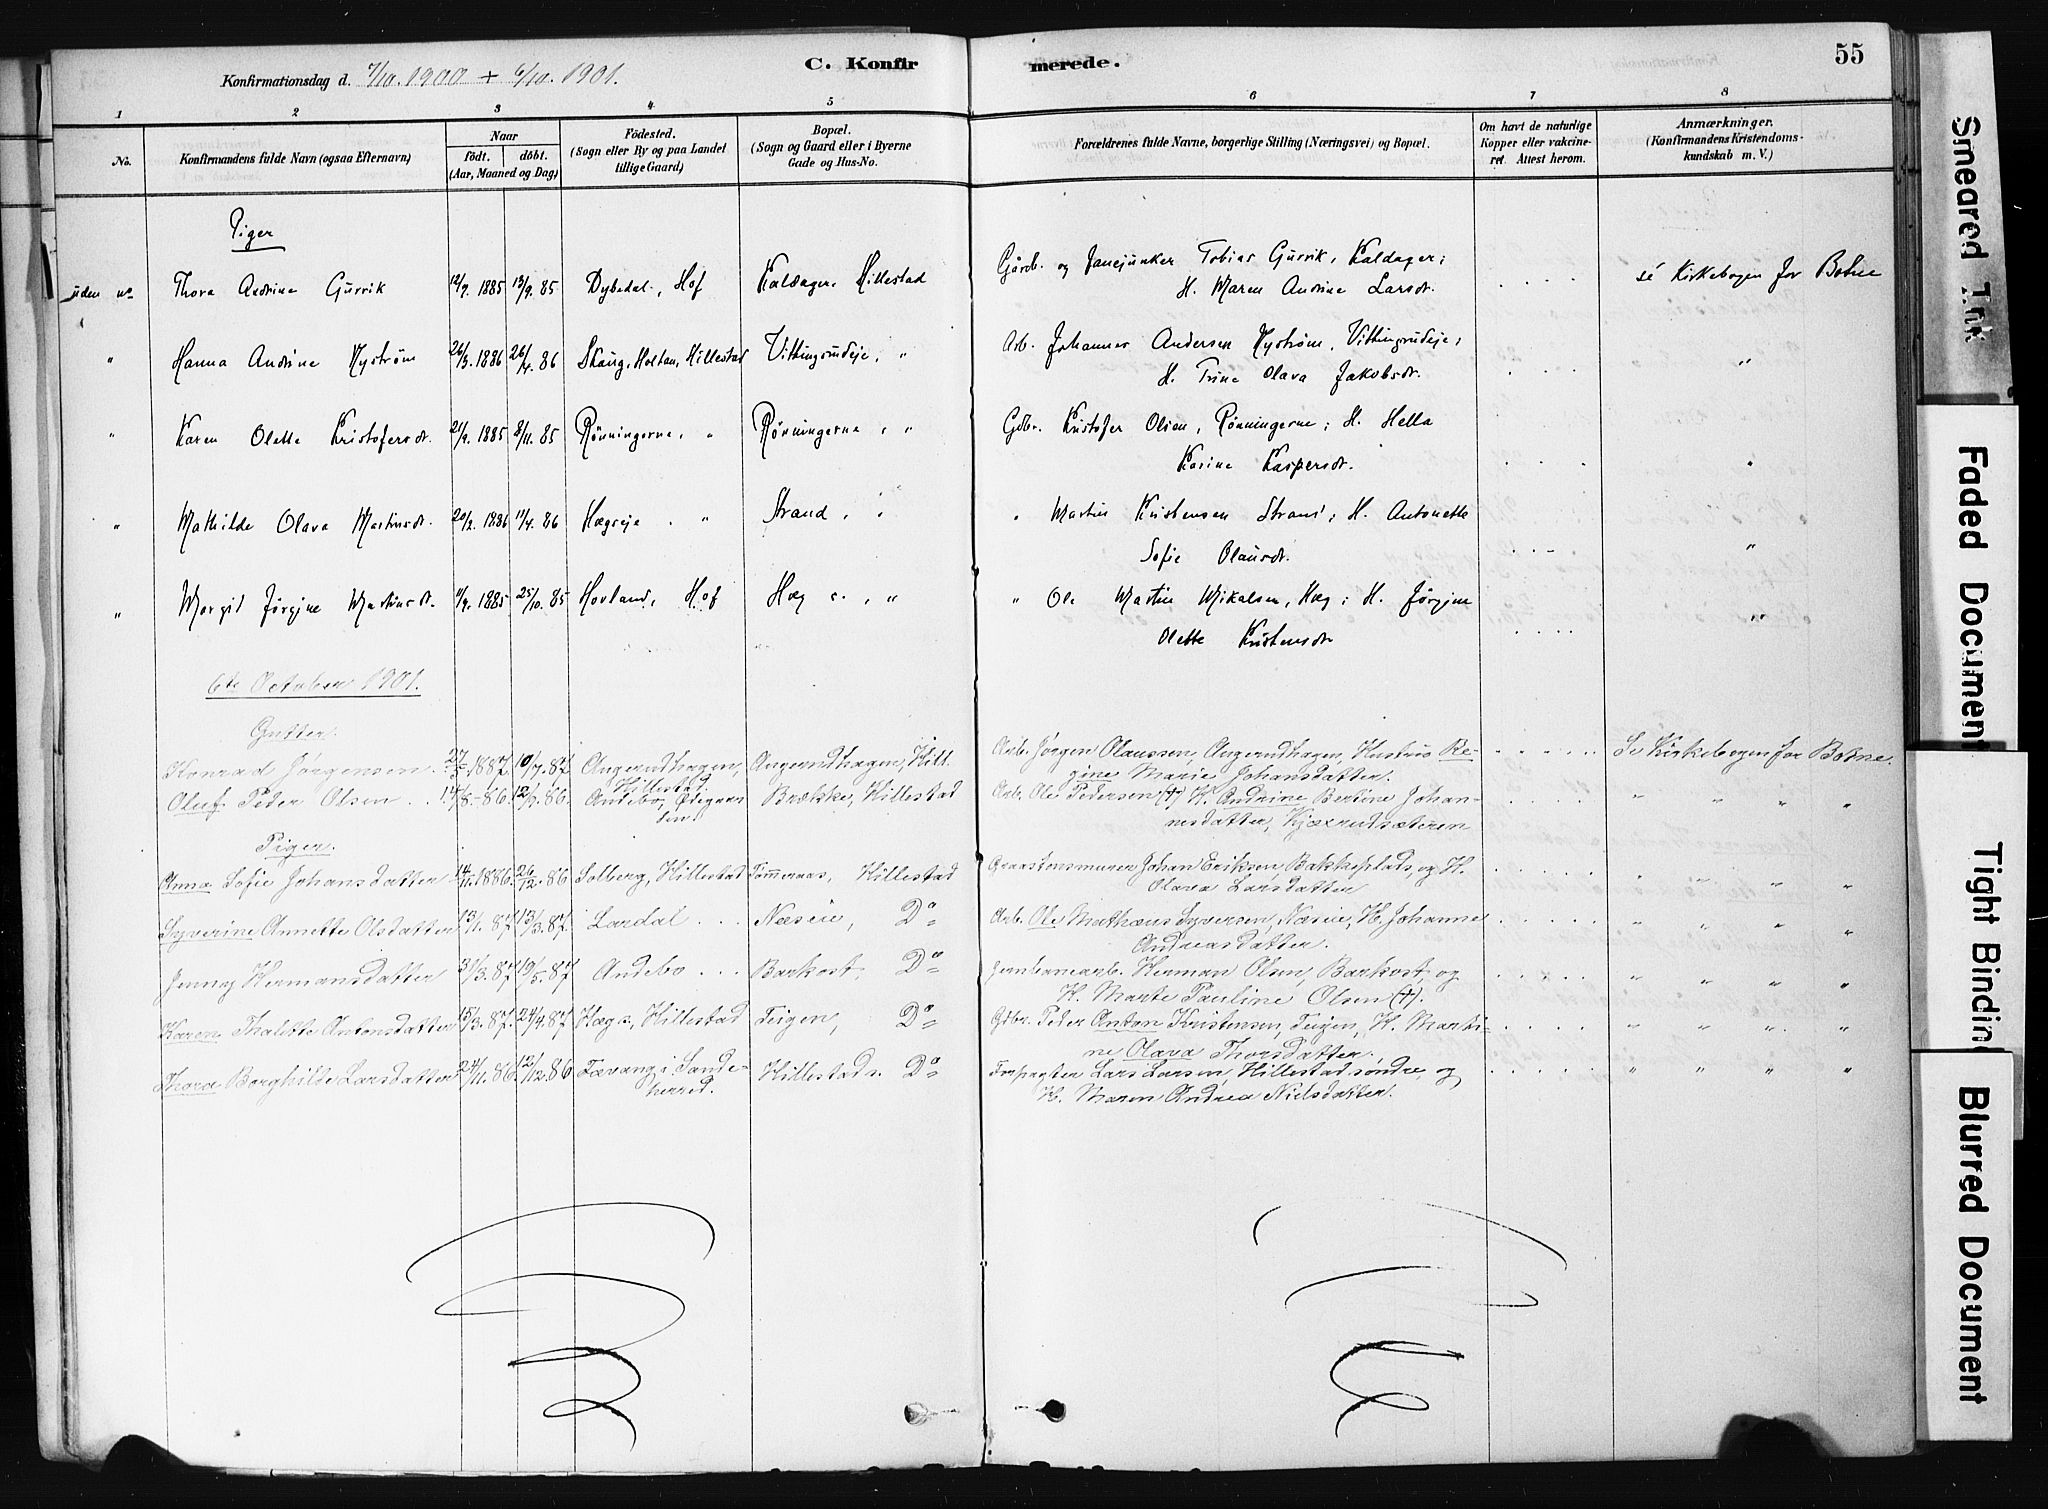 Konfirmationsdag d. 7/10. 1900 + 6/10. 1901.
C. Konfirmerede.
55
1 2 3 4 5 6 7 8
No.
Konfirmandens fulde Navn (ogsaa Efternavn)
Naar
födt. döbt.
(Aar, Maaned og Dag)
Födested.
(Sogn eller By og paa Landet
tillige Gaard)
Bopæl.
(Sogn og Gaard eller i Byerne
Gade og Hus-No.
Forældrenes fulde Navne, borgerlige Stilling (Næringsvei) og Bopæl.
Om havt de naturlige
Kopper eller vakcine-
ret. Attest herom.
Anmærkninger.
(Konfirmandens Kristendoms-
kundskab m. V.)
Piger
uden no. Thora Andrine Gurrik 12/7. 1885 13/9. 85 Dybedal, Hof Kaldager, Hillestad Gårdb. og Tobias Gurrik, Kaldager; sé Kirkebogen for Botne
H. Maren Andrine Larsdt.
" Hanna Andrine Nyström 26/3. 1886 26/4. 86 Skaug, Holtan, Hillestad Vittingsrudeje, " Arb. Johannes Andersen Nyström, Vittingsrudeje;
H. Trine Olava Jakobsdt. "
" Karen Olette Kristofersdt. 21/9. 1885 8/11. 85 Rönningerne, " Rönningerne, " Gdbr. Kristofer Olsen, Rönningerne; H. Hella
Karine Kaspersdt. "
" Mathilde Olava Martinsdt. 20/2. 1886 11/4. 86 Hægseje " Strand, " " Martin Kristensen Strand; H. Antonette
Sofie Olausdt. "
" Margit Jørgine Martinsdt. 11/9. 1885 25/10. 85 Hovland, Hof Hæg s., " " Ole Martin Mikalsen, Hæg; H. Jørgine "
Olette Kristensdt
6te October 1901.
Gutter.
Konrad Jørgensen 27/5. 1887. 10/7. 87 Angerudhagen, Angerudhagen, Hill. Arb. Jørgen Olaussen, Angerudhagen, Hustru Re- Se Kirkebogen for Botne.
Hillestad gine Marie Johansdatter.
Oluf Peder Olsen 86. 12/9. 86. Andebo, Brække, Hillestad Arb. Ole Pedersen (+) H. Andrine Bertine Johan- " " " "
nesdatter, Kjærrudsæteren
Piger.
Anna Sofie Johansdatter 14/11. 1886. 26/12. 86 Solberg, Hillestad Tømmeraas, Hillestad Graastensmurer Johan Eriksen, Bakkeplads, og H. " " " "
Olava Larsdatter
Syverine Annette Olsdatter 13/1. 87. 13/3. 87. Lardal Næseie, Do Arb. Ole Mathæus Syversen, Næseie, H. Johanne " " " "
Andreasdatter.
Jenny Hermansdatter 31/3. 87. 19/5. 87 Andebo Barkost, Do Jernbanearb. Herman Olsen, Barkost, og " " " "
H. Marte Pauline Olsen (+).
Karen Thalette Antonsdatter 15/3. 87. 24/4. 87 Hæg s., Hillestad Teigen, Do Gdbr. Peder Anton Kristensen, Teigen, H. Marti- " " " "
ne Olava Thorsdatter.
Thora Borghilde Larsdatter 24/11. 86. 12/12. 86 Fævang i Sande- Hillestad s. Do Forpagter Lars Larsen, Hillestad søndre, og " " " "
herred. H. Maren Andrea Nielsdatter.
Smeared Ink
Faded Document
Tight Bindin
Blurred Document